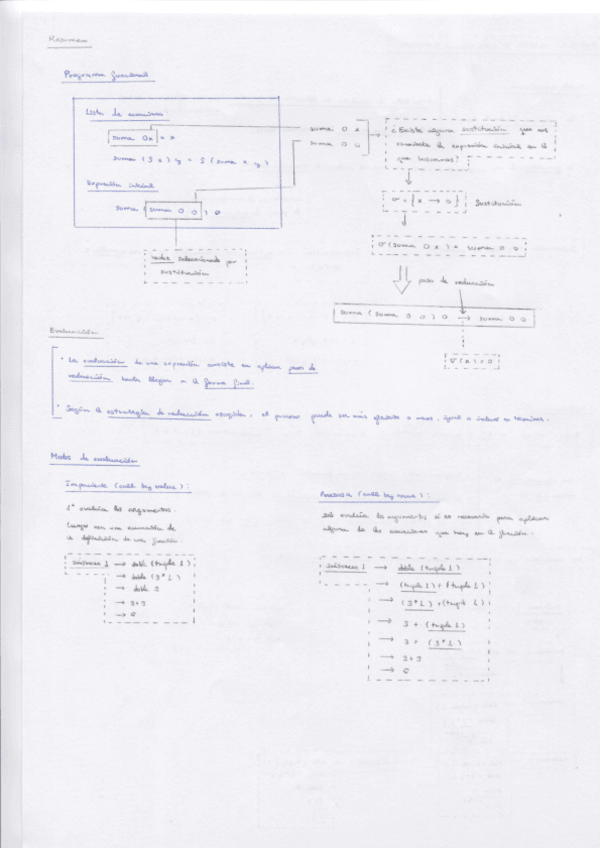 Resumen
Programa funcional
Lista de ecuaciones
suma 0 x = x
suma (S x) y = S (suma x y)
Expresión inicial
suma (suma 0 0) 0
redex seleccionado por
sustitución
suma 0 x
suma 0 0
¿Existe alguna sustitución que nos
convierta la expresión inicial en la
que buscamos?
σ = { x → 0 }
Sustitución
σ (suma 0 x) = suma 0 0
paso de reducción
suma (suma 0 0) 0 → suma 0 0
σ (x) = 0
Evaluación
· La evaluación de una expresión consiste en aplicar pasos de
reducción hasta llegar a la forma final.
· Según la estrategia de reducción escogida, el proceso puede ser más eficiente o menos, igual o incluso no terminar.
Modos de evaluación
Impaciente (call by value):
1º evalúa los argumentos.
Luego usa una ecuación de
la definición de una función.
→ doble (triple 1)
→ doble (3*1)
→ doble 3
→ 3+3
→ 6
Perezosa (call by name):
Solo evalúa los argumentos si es necesario para aplicar
alguna de las ecuaciones que hay en la función.
→ doble (triple 1)
→ (triple 1) + (triple 1)
→ (3*1) + (triple 1)
→ 3 + (triple 1)
→ 3 + (3*1)
→ 3+3
→ 6